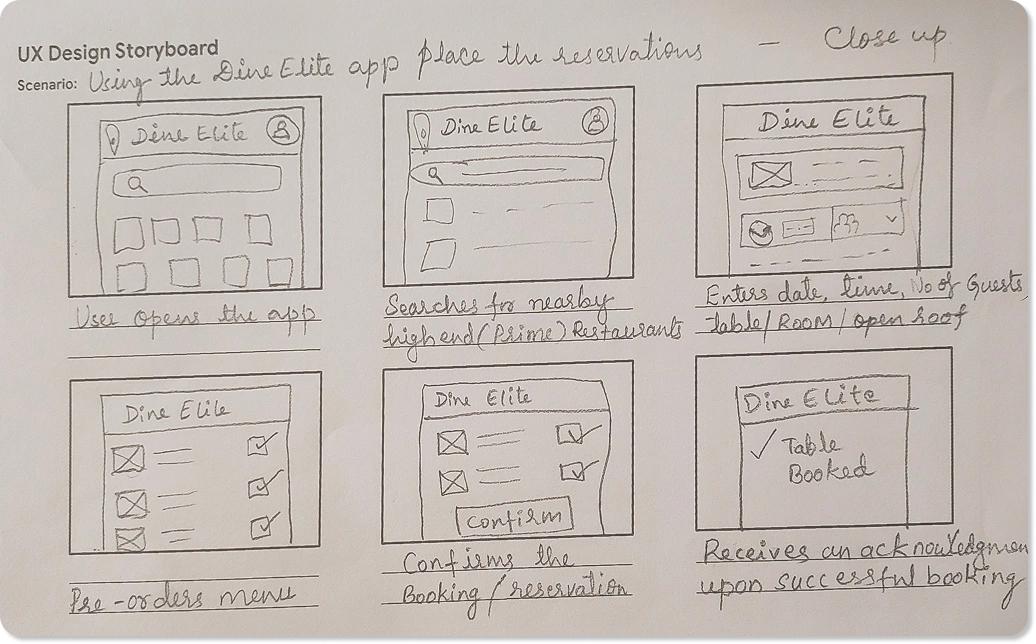 UX Design Storyboard
Scenario: Using the Dine Elite app place the reservations — Close up
Dine Elite
User opens the app
Dine Elite
Searches for nearby
high end (Prime) Restaurants
Dine Elite
Enters date, time, No of Guests,
table/ROOM/open roof
Dine Elite
Pre-orders menu
Dine Elite
Confirm
Confirms the
Booking/reservation
Dine Elite
✓ Table
Booked
Receives an acknowledgmen
upon successful booking